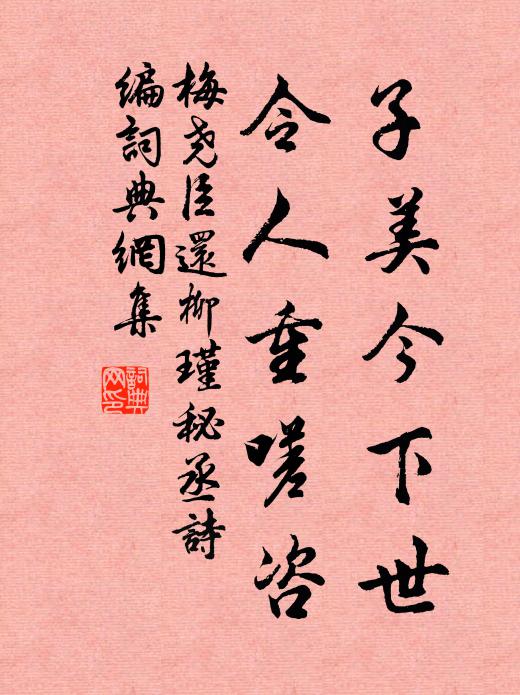 子美今下世
令人重嗟咨
梅尧臣還柳瑾秘丞詩
編詞典網集
詞典網印